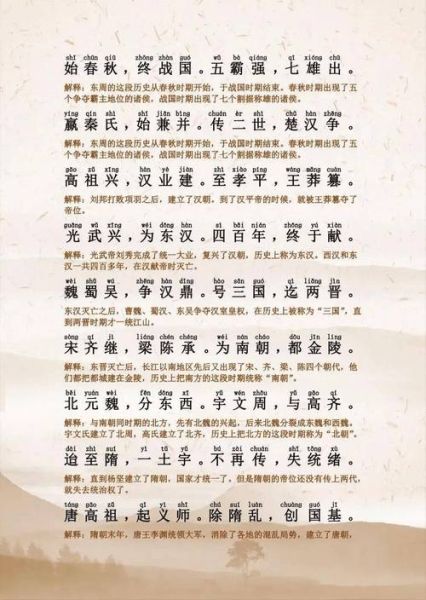 shǐ chūn qiū zhōng zhàn guó wǔ bà qiáng qī xióng chū
始春秋，终战国。五霸强，七雄出。
解释：东周的这段历史从春秋时期开始，于战国时期结束。春秋时期出现了五
个争夺霸主地位的诸侯，战国时期出现了七个割据称雄的诸侯。
yíng qín shì shǐ jiān bìng chuán èr shì chǔ hàn zhēng
嬴秦氏，始兼并。传二世，楚汉争。
解释：东周的这段历史从春秋时期开始，于战国时期结束。春秋时期出现了五
个争夺霸主地位的诸侯，战国时期出现了七个割据称雄的诸侯。
gāo zǔ xīng hàn yè jiàn zhì xiào píng wáng mǎng cuàn
高祖兴，汉业建。至孝平，王莽篡。
解释：刘邦打败项羽之后，建立了汉朝。到了汉平帝的时候，就被王莽篡夺了
帝位。
guāng wǔ xīng wéi dōng hàn sì bǎi nián zhōng yú xiàn
光武兴，为东汉。四百年，终于献。
解释：光武帝刘秀完成了统一大业，复兴了汉朝，历史上称为东汉。西汉和东
汉一共四百多年，在汉献帝时灭亡。
wèi shǔ wú zhēng hàn dǐng hào sān guó qì liǎng jìn
魏蜀吴，争汉鼎。号三国，迄两晋。
东汉灭亡之后，曹魏、蜀汉、东吴争夺汉室皇权，在历史上被称为“三国”，直
到两晋时期才一统江山。
sòng qí jì liáng chén chéng wéi nán cháo dū jīn líng
宋齐继，梁陈承。为南朝，都金陵。
解释：东晋灭亡后，长江以南地区先后又出现了宋、齐、梁、陈四个朝代，他
们都把都城建在金陵，历史上把南方的这段时期统称“南朝”。
běi yuán wèi fēn dōng xī yǔ wén zhōu yǔ gāo qí
北元魏，分东西。宇文周，与高齐。
解释：与南朝同时期的北方，先有北魏的兴起，后来北魏分裂成东魏和西魏。
宇文氏建立了北周，高氏建立了北齐，历史上把北方的这段时期称为“北朝”。
dài zhì suí yī tǔ yǔ bú zài chuán shī tǒng xù
迨至隋，一土宇。不再传，失统绪。
解释：直到杨坚建立了隋朝，国家才统一了，但是隋朝的帝位还没有传上两代，
就失去统治权了。
táng gāo zǔ qǐ yì shī chú suí luàn chuàng guó jī
唐高祖，起义师。除隋乱，创国基。
解释：隋朝末年，唐王李渊统领大军，消除了各地的混乱局势，建立了唐朝，